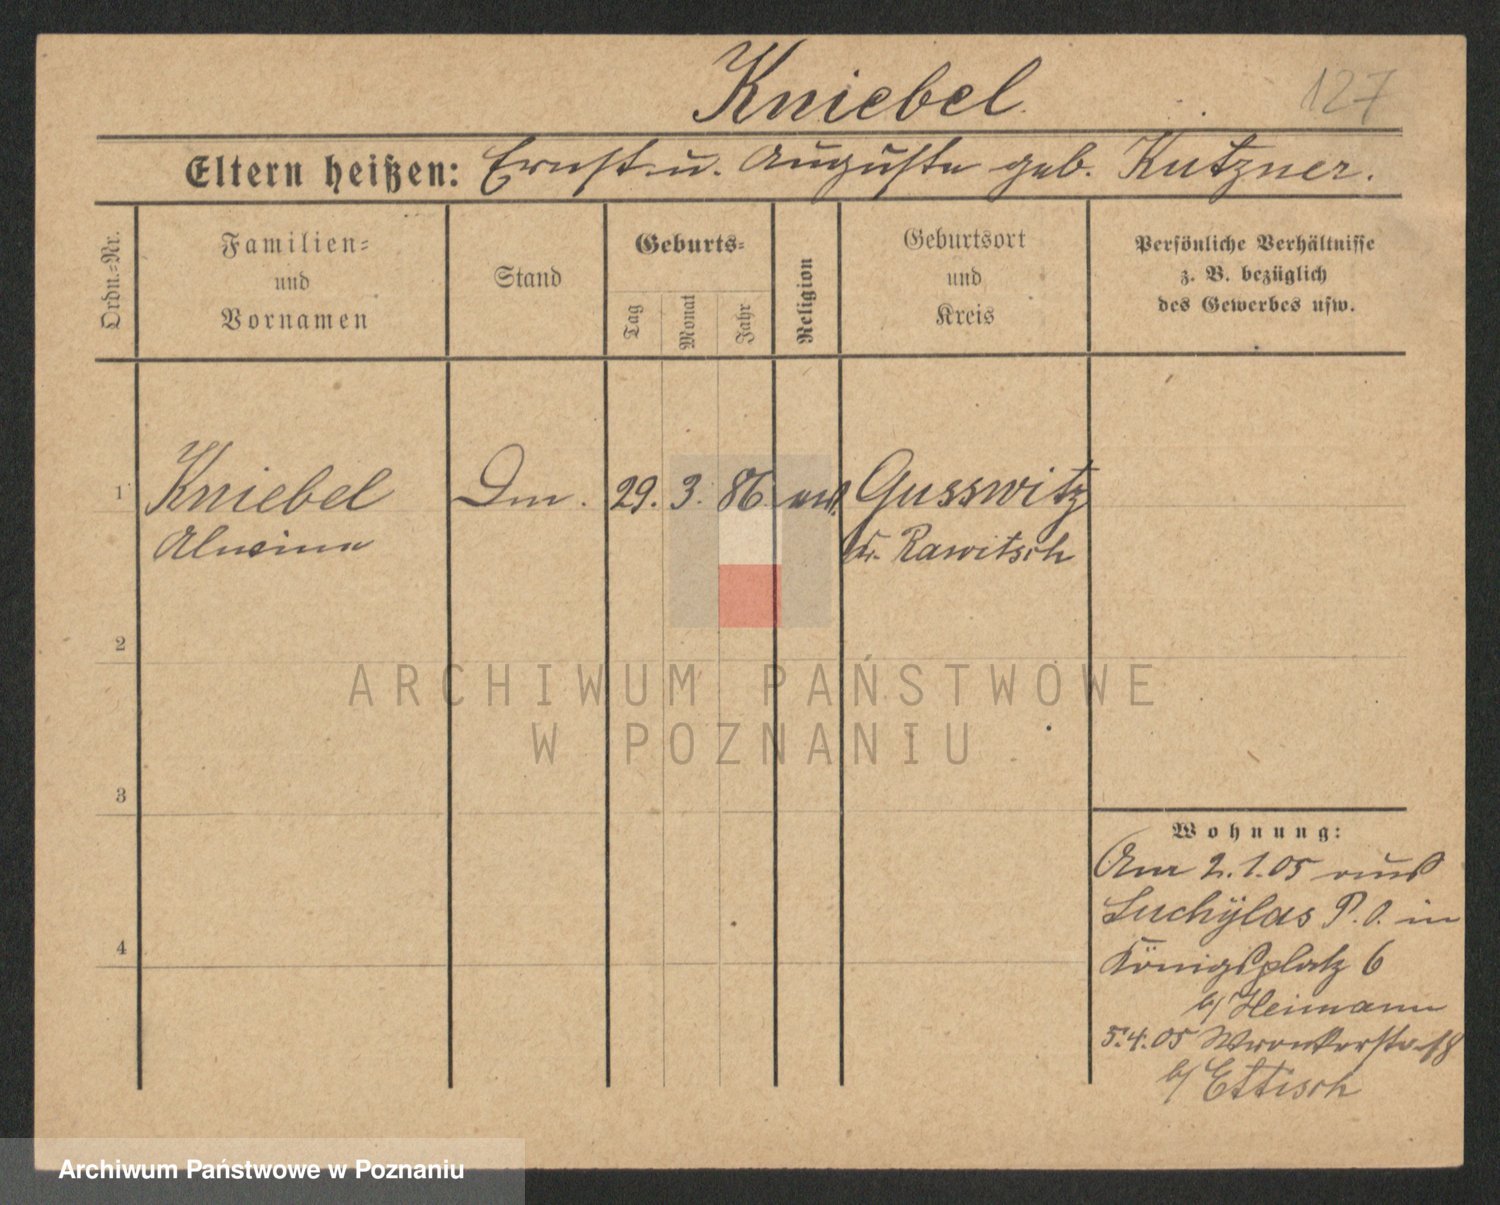 Kniebel
127
Eltern heißen: Ernst u. Auguste geb. Kutzner.
Ordn.=Nr.
Familien=
und
Vornamen
Stand
Geburts=
Tag
Monat
Jahr
Religion
Geburtsort
und
Kreis
Persönliche Verhältnisse
z. B. bezüglich
des Gewerbes usw.
1 Kniebel 29. 3. 86 Gusswitz
Kr. Rawitsch
2
3
4
Wohnung:
Am 2.1.05 aus
P.O. in
Königsplatz 6
b/ Heimann
5.4.05 Wronkerstr. 18
b/ Ettisch
ARCHIWUM PAŃSTWOWE
W POZNANIU
Archiwum Państwowe w Poznaniu